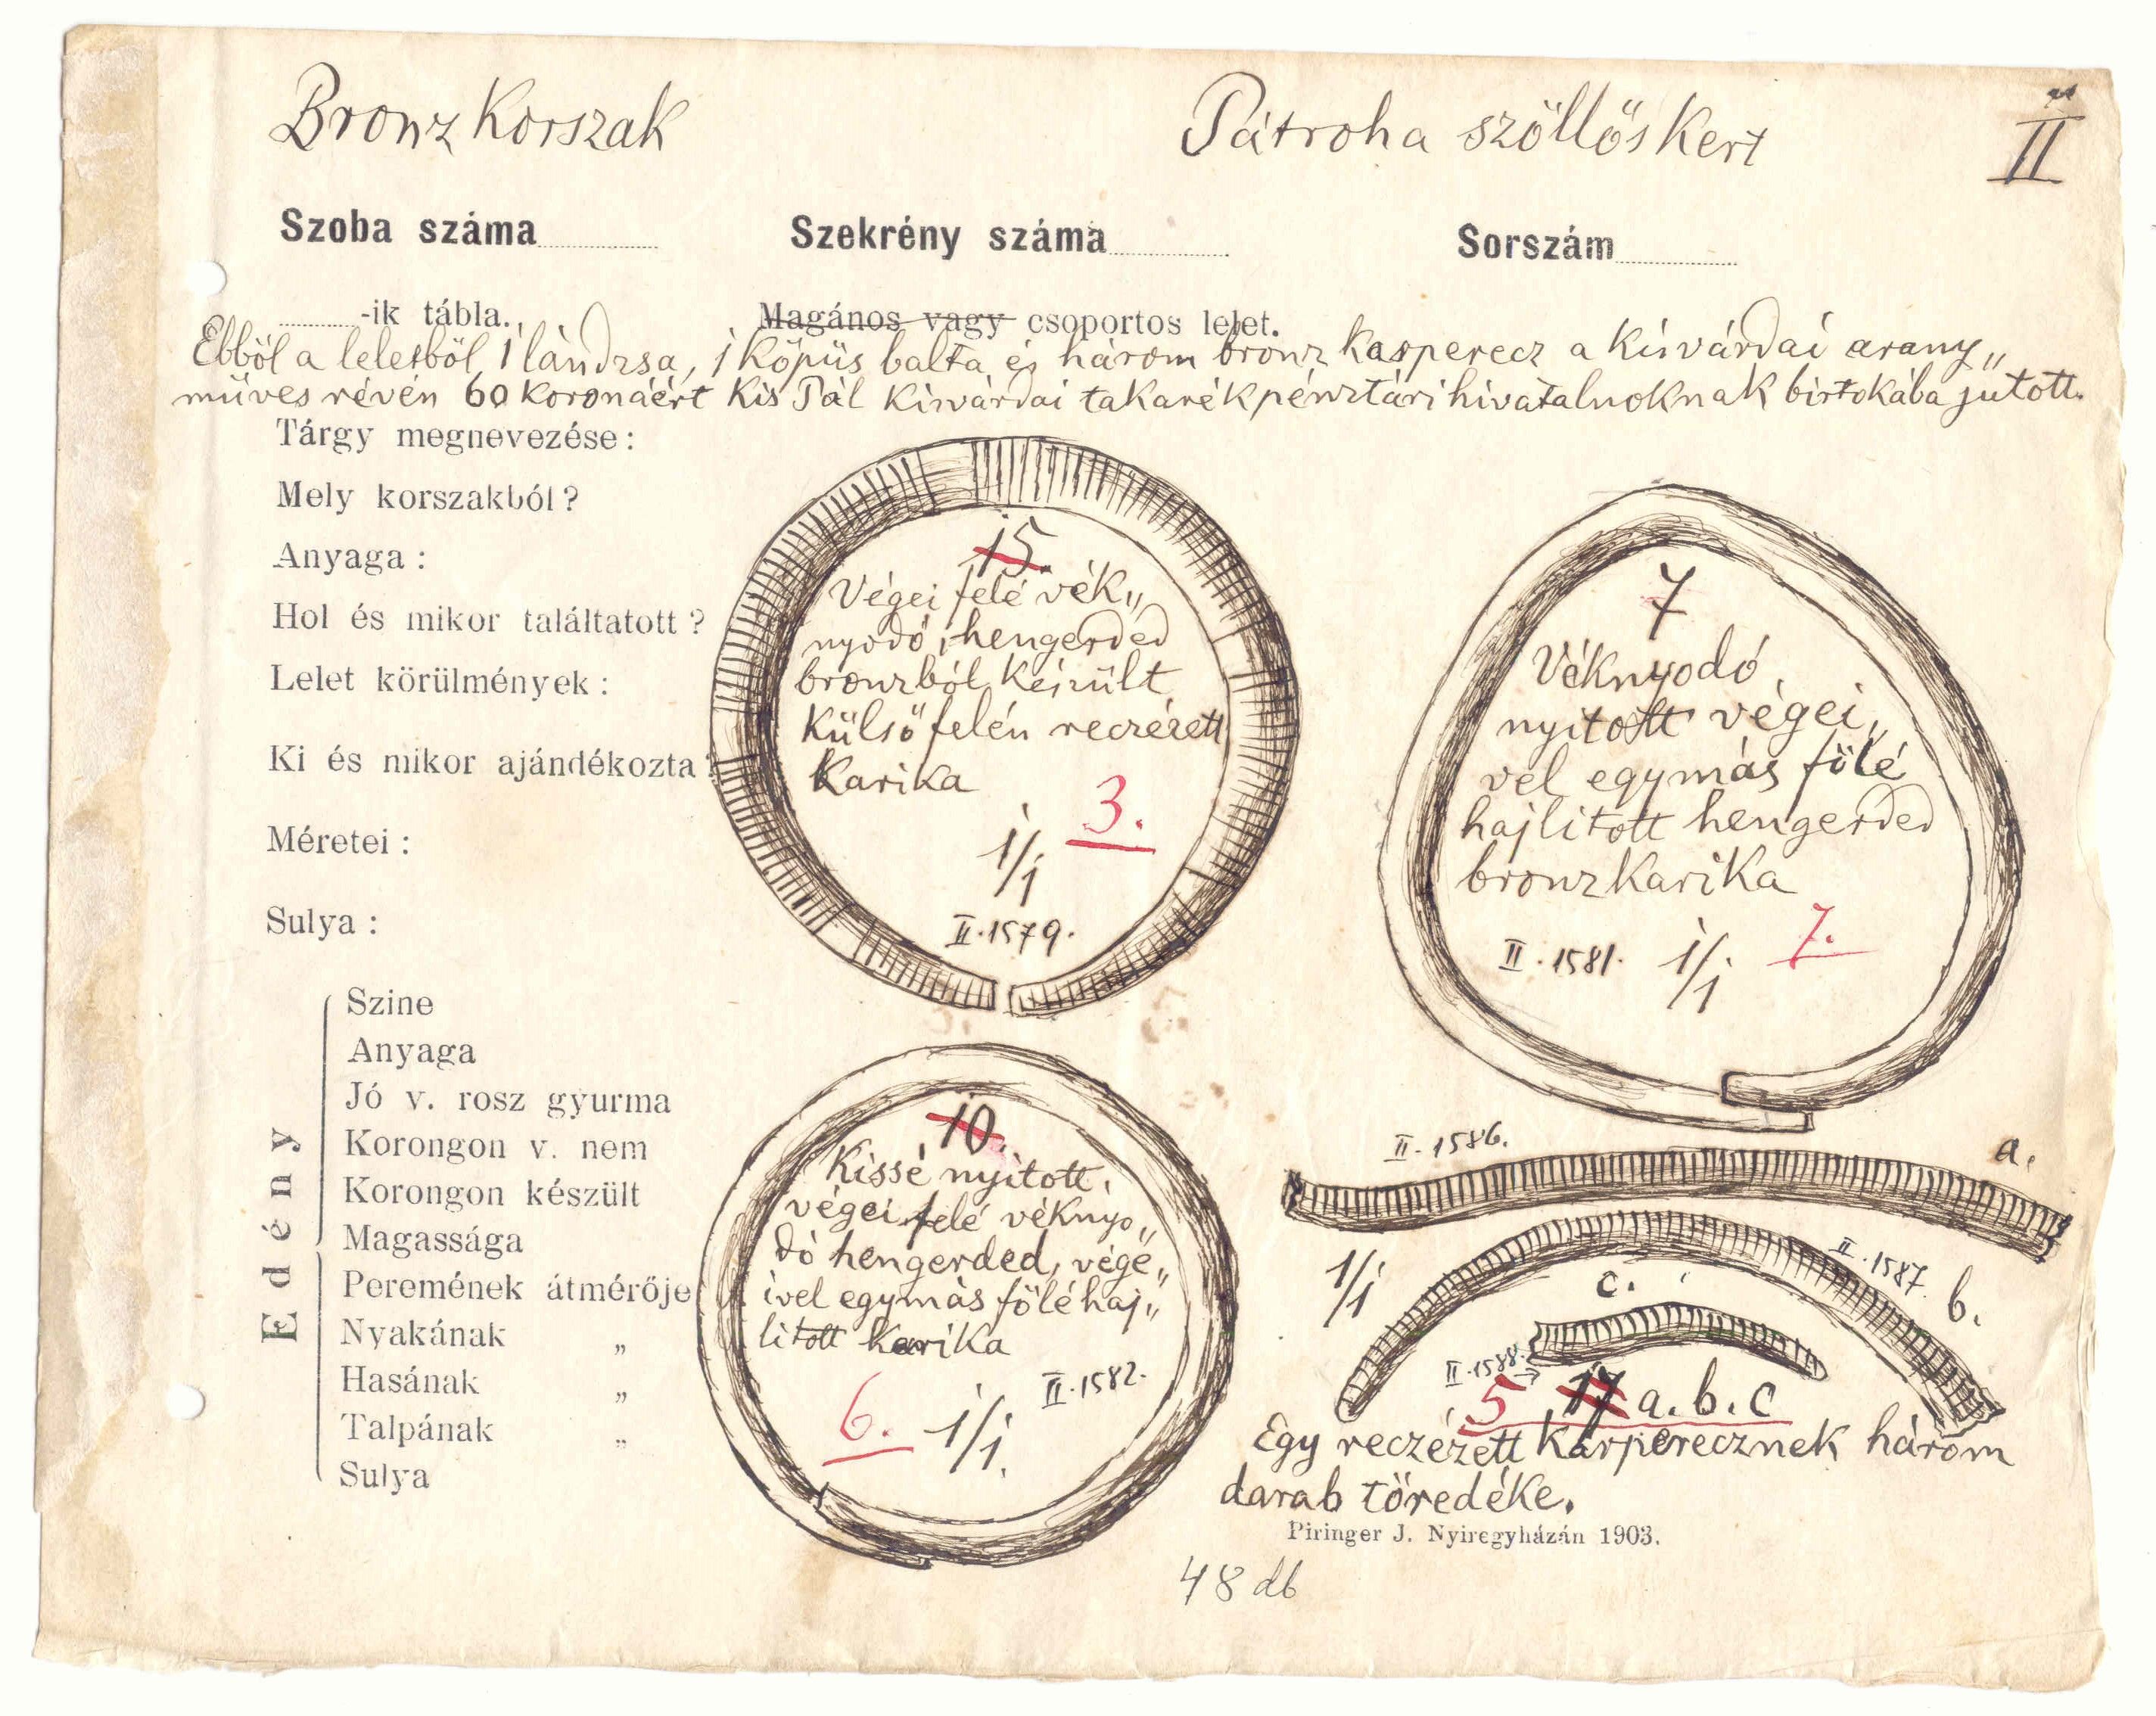 Bronz Korszak
Pátroha szöllőskert
II
Szoba száma
Szekrény száma
Sorszám
-ik tábla.
Magános vagy csoportos lelet.
Ebből a leletből 1 lándzsa, 1 köpüs balta és három bronz karperecz a kisvárdai arany„
műves révén 60 koronáért Kis Pál kisvárdai takarékpénztári hivatalnoknak birtokába jutott.
Tárgy megnevezése:
Mely korszakból?
Anyaga:
Hol és mikor találtatott?
Lelet körülmények:
Ki és mikor ajándékozta?
Méretei:
Sulya:
Edény
Szine
Anyaga
Jó v. rosz gyurma
Korongon v. nem
Korongon készült
Magassága
Peremének átmérője
Nyakának „
Hasának „
Talpának „
Sulya
15.
Végei felé vék„
nyodó, hengerded
bronzból készült
külső felén reczézett
karika
3.
1/1
II.1579.
7
Véknyodó,
nyitott végei„
vel egymás fölé
hajlitott hengerded
bronzkarika
7.
II.1581. 1/1
10.
Kissé nyitott,
végei felé véknyo„
dó hengerded, vége„
ivel egymás fölé haj„
litott karika
II.1582.
6. 1/1.
II.1586.
a.
1/1
II.1587.
b.
c.
II.1588. →
5 17 a. b. c
Egy reczézett karperecznek három
darab töredéke.
Piringer J. Nyiregyházán 1903.
48 db